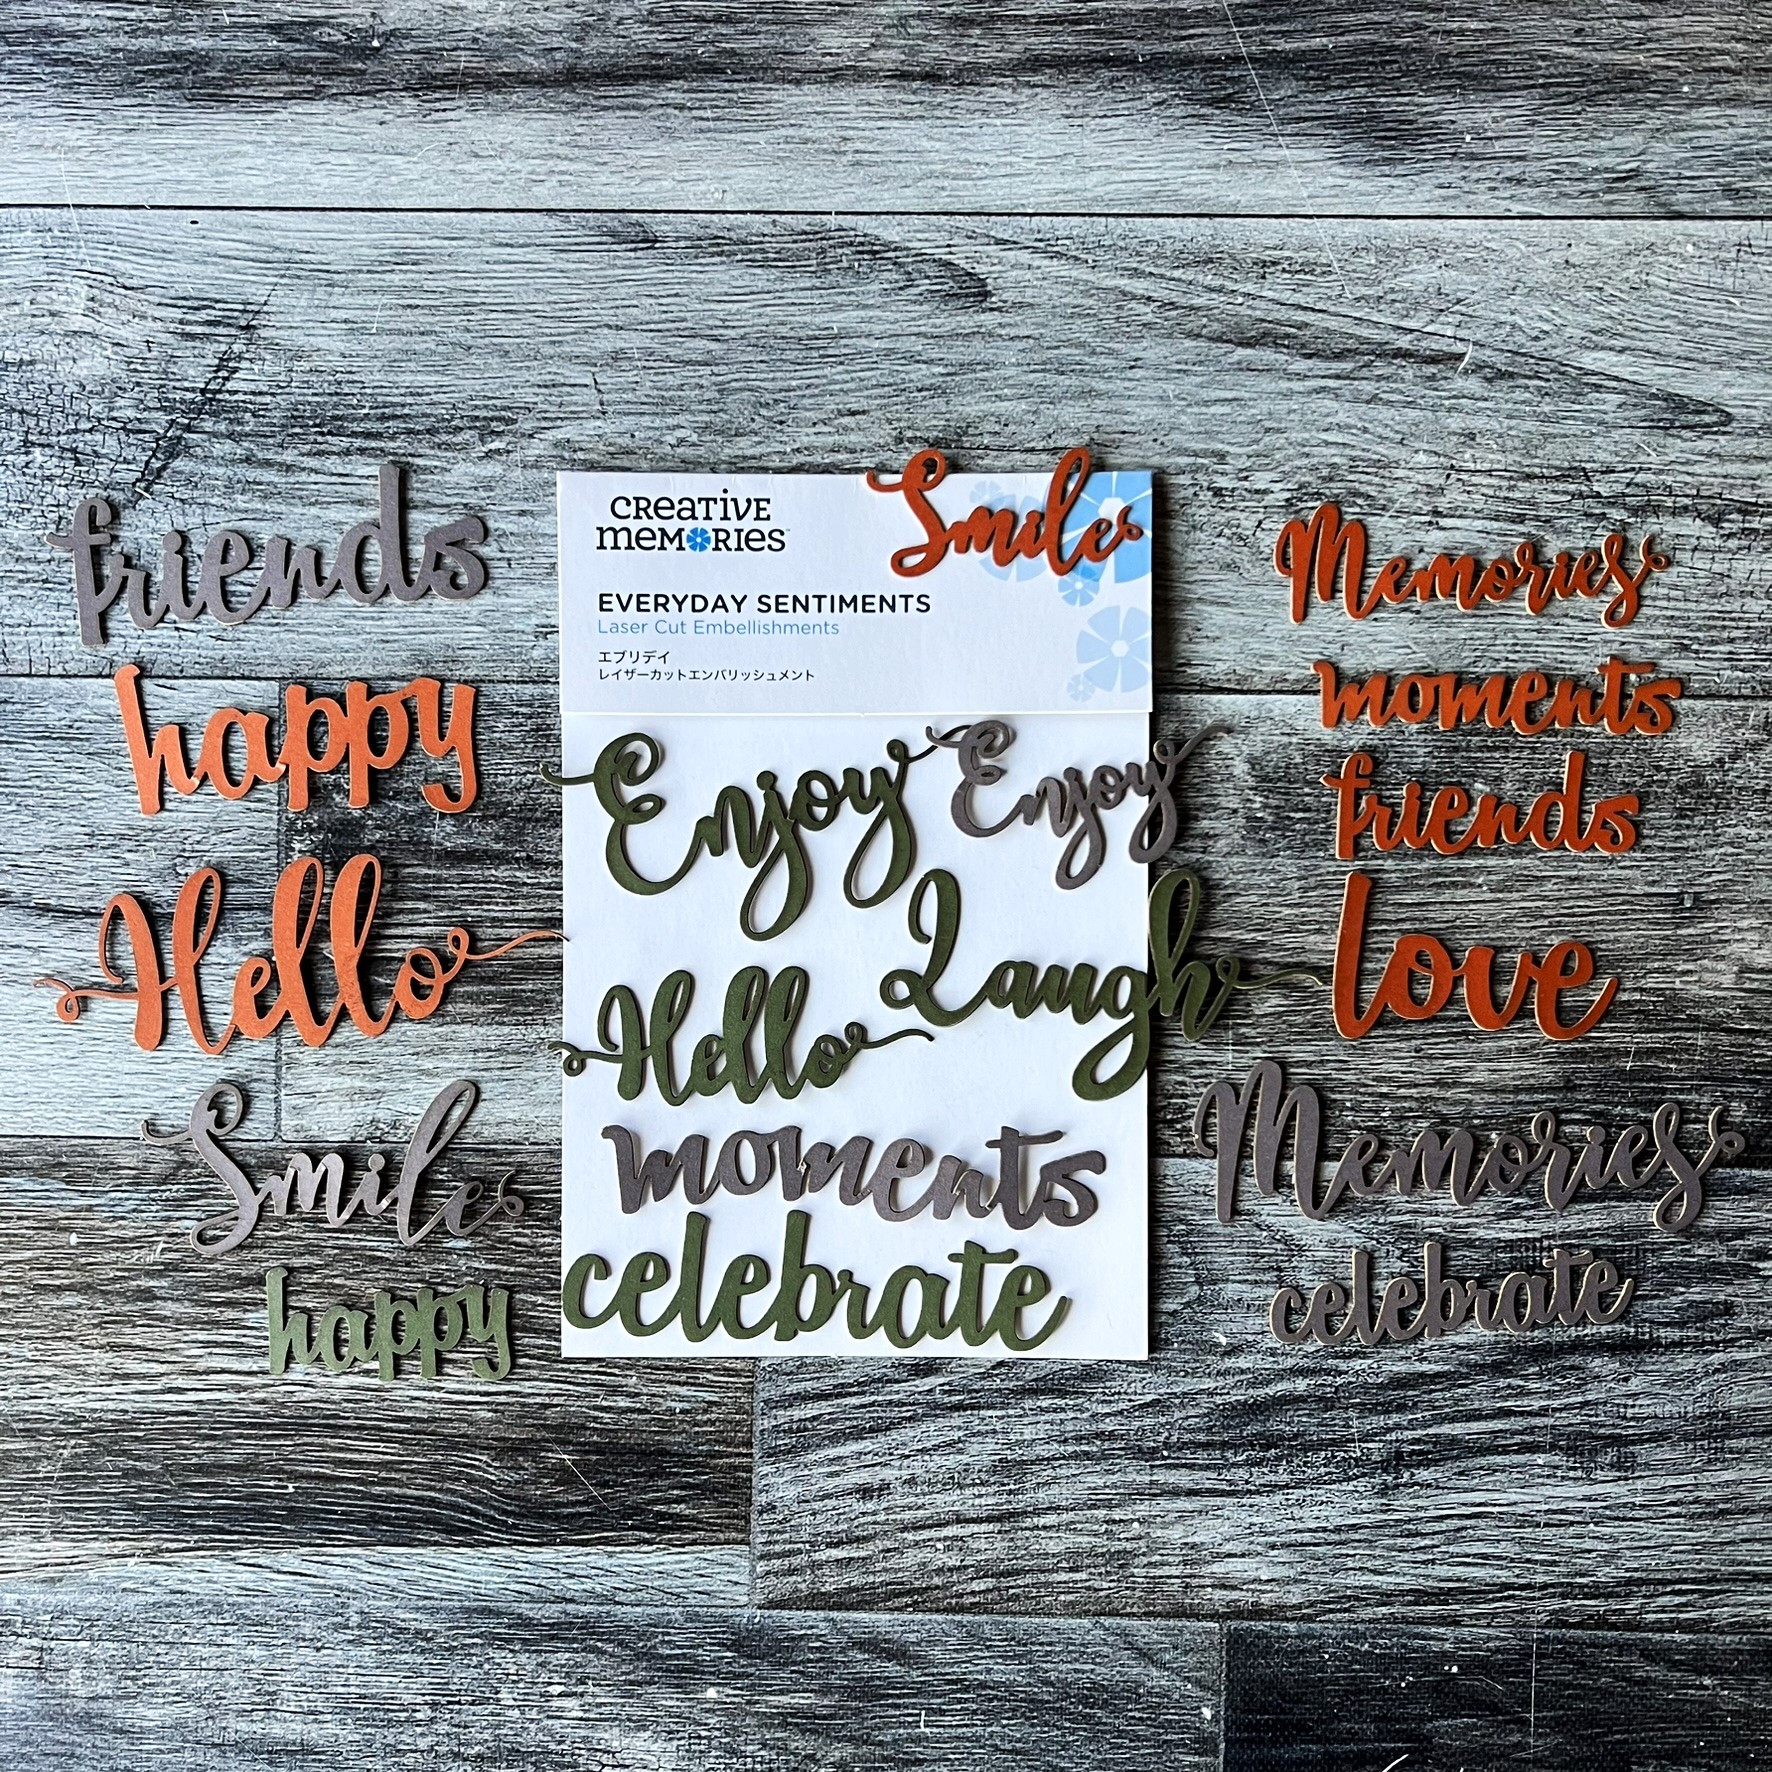 friends
happy
Hello
Smile
happy
CREATIVE
MEMORIES™
Smile
EVERYDAY SENTIMENTS
Laser Cut Embellishments
エブリデイ
レイザーカットエンバリッシュメント
Enjoy
Enjoy
Laugh
Hello
moments
celebrate
Memories
moments
friends
love
Memories
celebrate